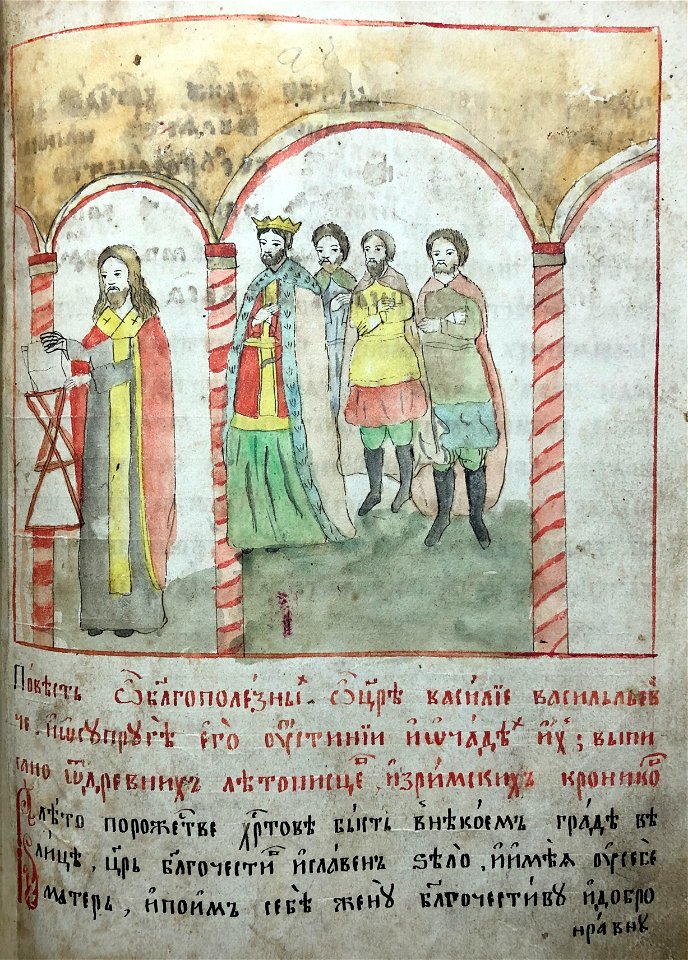 Повѣсть ѿ благополезныⷯ. ѡ цр҃ѣ василїе васильев
че. и҆ ѡ супрꙋгѣ є҆го̀ оу҆стинїи и҆ ѡ чадѣⷯ и҆ⷯ; выпи
сано ѿ древнихъ лѣтописцеⷡ, и҆ з̾ римскихъ кроникѡⷡ
лѣто порожⷭ҇тве хрⷭ҇товѣ бысть в̾ нѣкоемъ градѣ ве
лицѣ, цр҃ь бл҃гочестиⷡ и҆ славенъ ѕѣло, и҆ и҆мѣя оу҆ себе
матерь, и҆ поимъ себѣ женꙋ бл҃гочестивꙋ и҆ добро
нравнꙋ